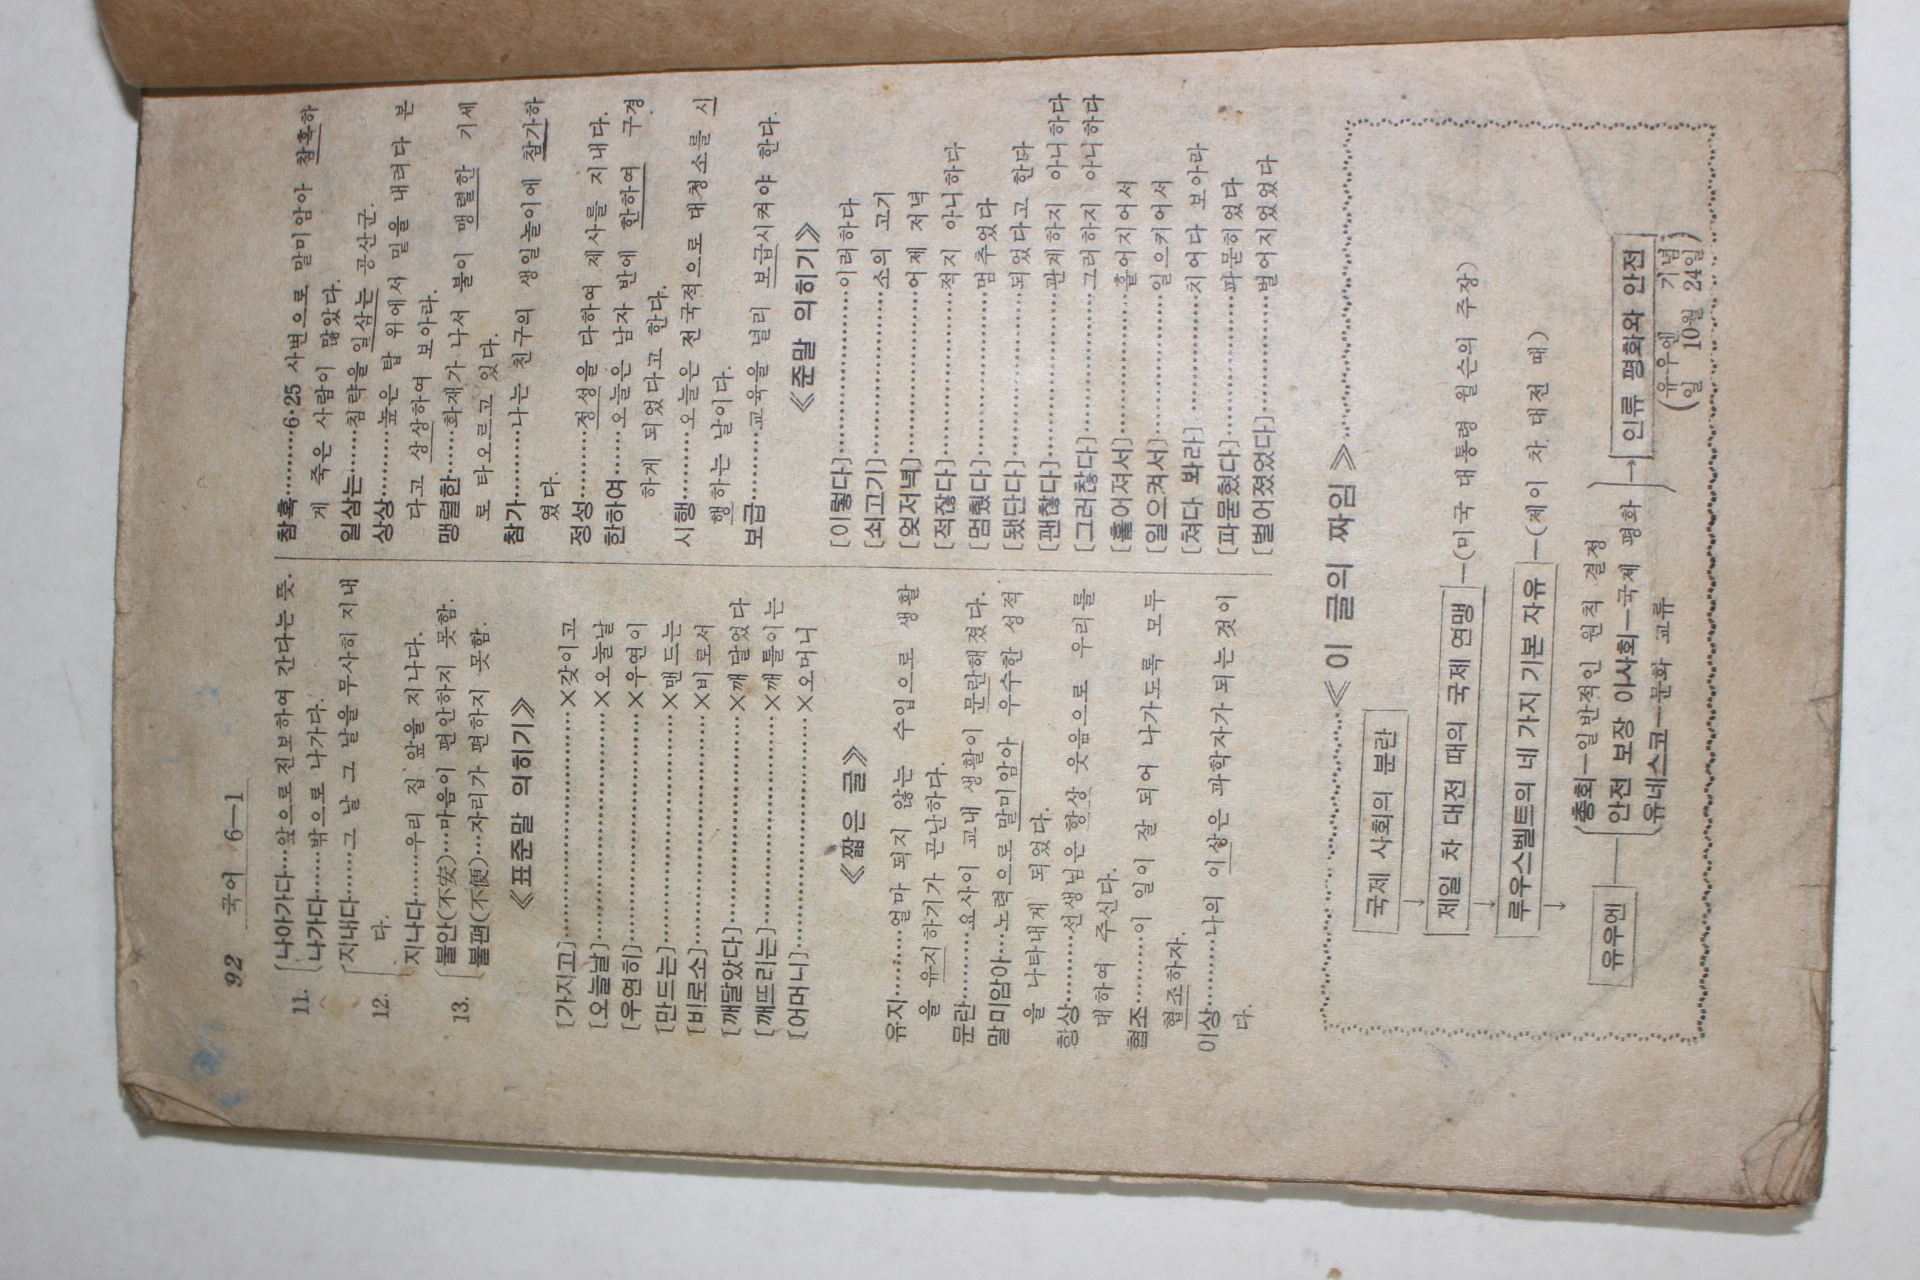 92 국어 6—1
11. 나아가다…앞으로 진보하여 간다는 뜻.
나가다……밖으로 나가다.
지내다……그 날 그 날을 무사히 지내
12. 다.
지나다……우리 집 앞을 지나다.
13. 불안(不安)…마음이 편안하지 못함.
불편(不便)…자리가 편하지 못함.
≪표준말 익히기≫
[가지고]……………………×갖이고
[오늘날]……………………×오눌날
[우연히]……………………×우연이
[만드는]……………………×맨드는
[비로소]……………………×비로서
[깨달았다]…………………×깨달었다
[깨뜨리는]…………………×깨틀이는
[어머니]……………………×오머니
≪짧은 글≫
유지………얼마 되지 않는 수입으로 생활
을 유지하기가 곤난하다.
문란………요사이 교내 생활이 문란해졌다.
말미암아…노력으로 말미암아 우수한 성적
을 나타내게 되었다.
항상………선생님은 항상 웃음으로 우리를
대하여 주신다.
협조………이 일이 잘 되어 나가도록 모두
협조하자.
이상………나의 이상은 과학자가 되는 것이
다.
참혹………6·25 사변으로 말미암아 참혹하
게 죽은 사람이 많았다.
일삼는……침략을 일삼는 공산군.
상상………높은 탑 위에서 밑을 내려다 본
다고 상상하여 보아라.
맹렬한……화재가 나서 불이 맹렬한 기세
로 타오르고 있다.
참가………나는 친구의 생일놀이에 참가하
였다.
정성………정성을 다하여 제사를 지내다.
한하여……오늘은 남자 반에 한하여 구경
하게 되었다고 한다.
시행………오늘은 전국적으로 대청소를 시
행하는 날이다.
보급………교육을 널리 보급시켜야 한다.
≪준말 익히기≫
[이렇다]………………이러하다
[쇠고기]………………소의 고기
[엊저녁]………………어제 저녁
[적잖다]………………적지 아니하다
[멈췄다]………………멈추었다
[됐단다]………………되었다고 한다
[괜찮다]………………관계하지 아니하다
[그러찮다]……………그러하지 아니하다
[흩어져서]……………흩어지어서
[일으켜서]……………일으키어서
[쳐다 봐라]……………치어다 보아라
[파묻혔다]……………파묻히었다
[벌어졌었다]…………벌어지었었다
≪이 글의 짜임≫
국제 사회의 분란
↓
제일 차 대전 때의 국제 연맹—(미국 대통령 윌슨의 주장)
↓
루우스벨트의 네 가지 기본 자유—(제이 차 대전 때)
↓
유우엔—
총회—일반적인 원칙 결정
안전 보장 이사회—국제 평화
유네스코—문화 교류
→인류 평화와 안전
(유우엔 기념
일 10월 24일)